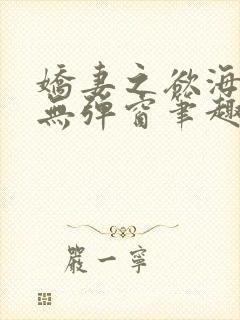 嬌妻之欲海
無彈窗筆趣
嚴一寧